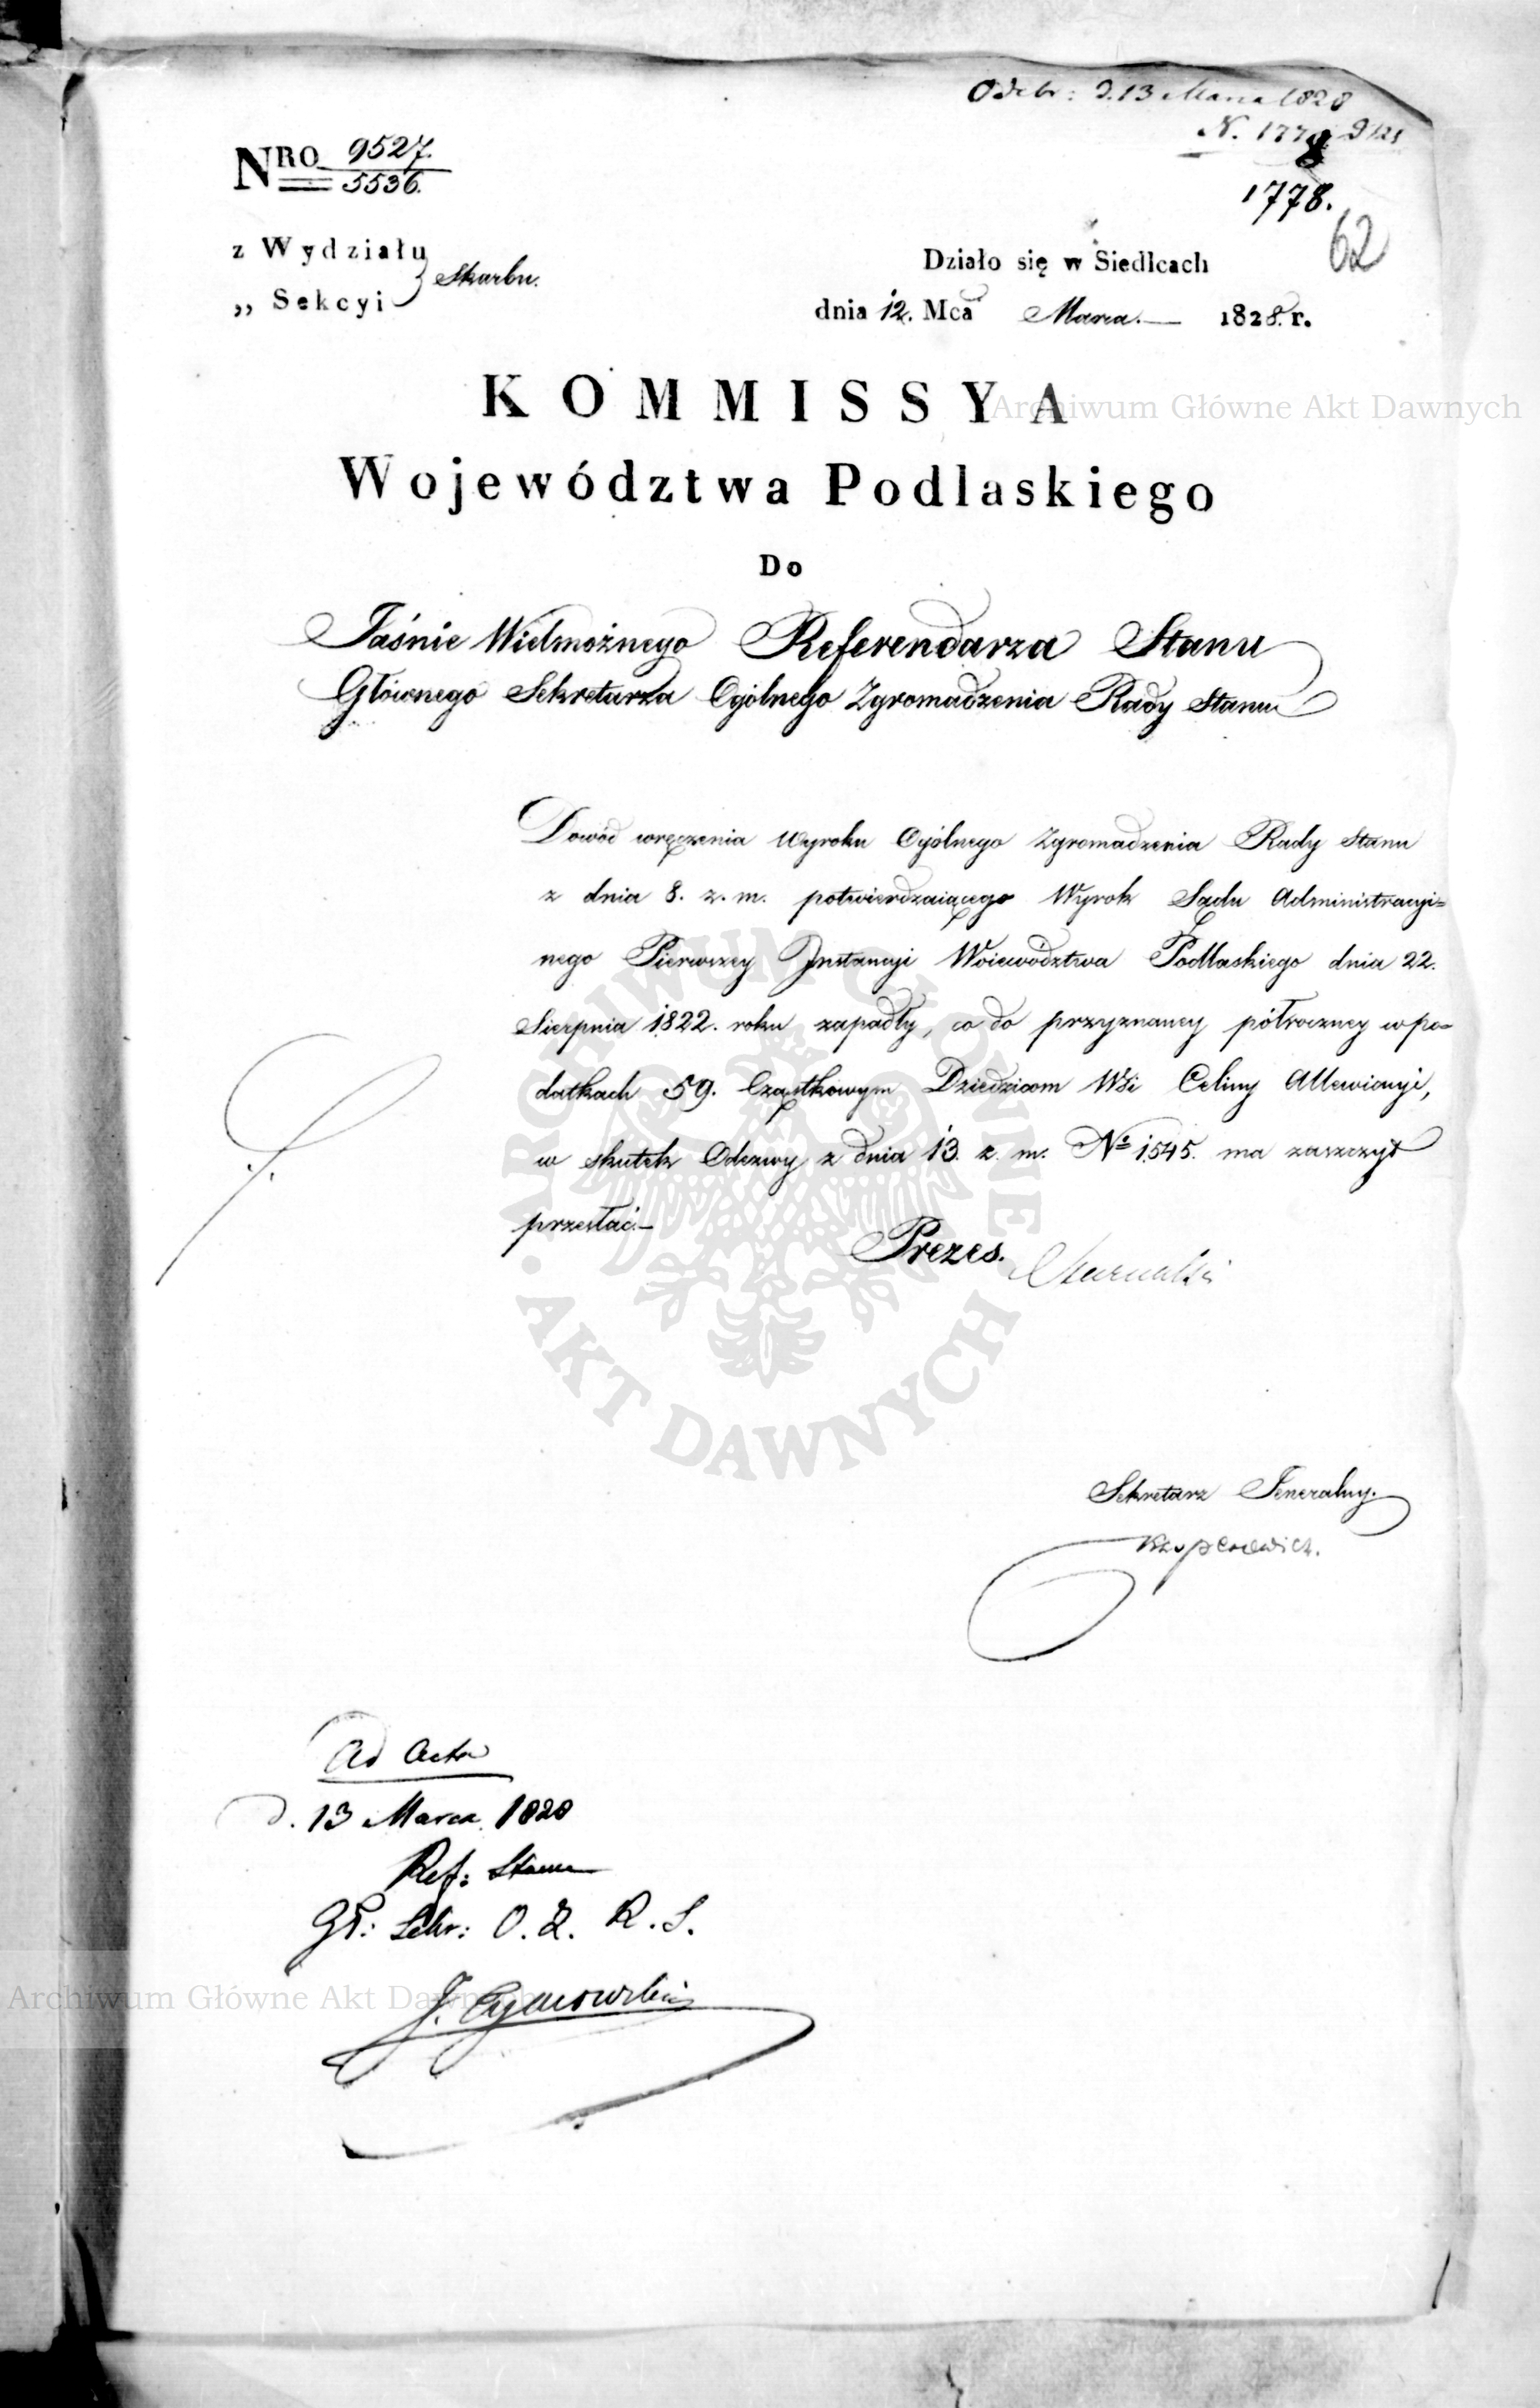 Odebr: d. 13 Marca 1828
N. 1778
1778.
62
NRO 9527.
5536.
z Wydziału
„ Sekcyi
Skarbu.
Działo się w Siedlcach
dnia 12. Mca Marca. — 1828. r.
KOMMISSYA
Województwa Podlaskiego
Do
Jaśnie Wielmożnego Referendarza Stanu
Głównego Sekretarza Ogólnego Zgromadzenia Rady Stanu
Dowód wręczenia Wyroku Ogólnego Zgromadzenia Rady Stanu
z dnia 8. z. m. potwierdzaiącego Wyrok Sądu Administracyi=
nego Pierwszey Instancyi Woiewództwa Podlaskiego dnia 22.
Sierpnia 1822. roku zapadły, co do przyznaney półroczney w po=
datkach 59. Cząstkowym Dziedzicom Wsi Celiny Allewiacyi,
w skutek Odezwy z dnia 13. z. m. No 1545. ma zaszczyt
przesłać.—
Prezes.
Sekretarz Jeneralny.
Ad Acta
d. 13 Marca 1828
Ref: Stanu
Gł: Sekr: O. Z. R. S.
Archiwum Główne Akt Dawnych
Archiwum Główne Akt Dawnych
ARCHIWUM GŁÓWNE · AKT DAWNYCH